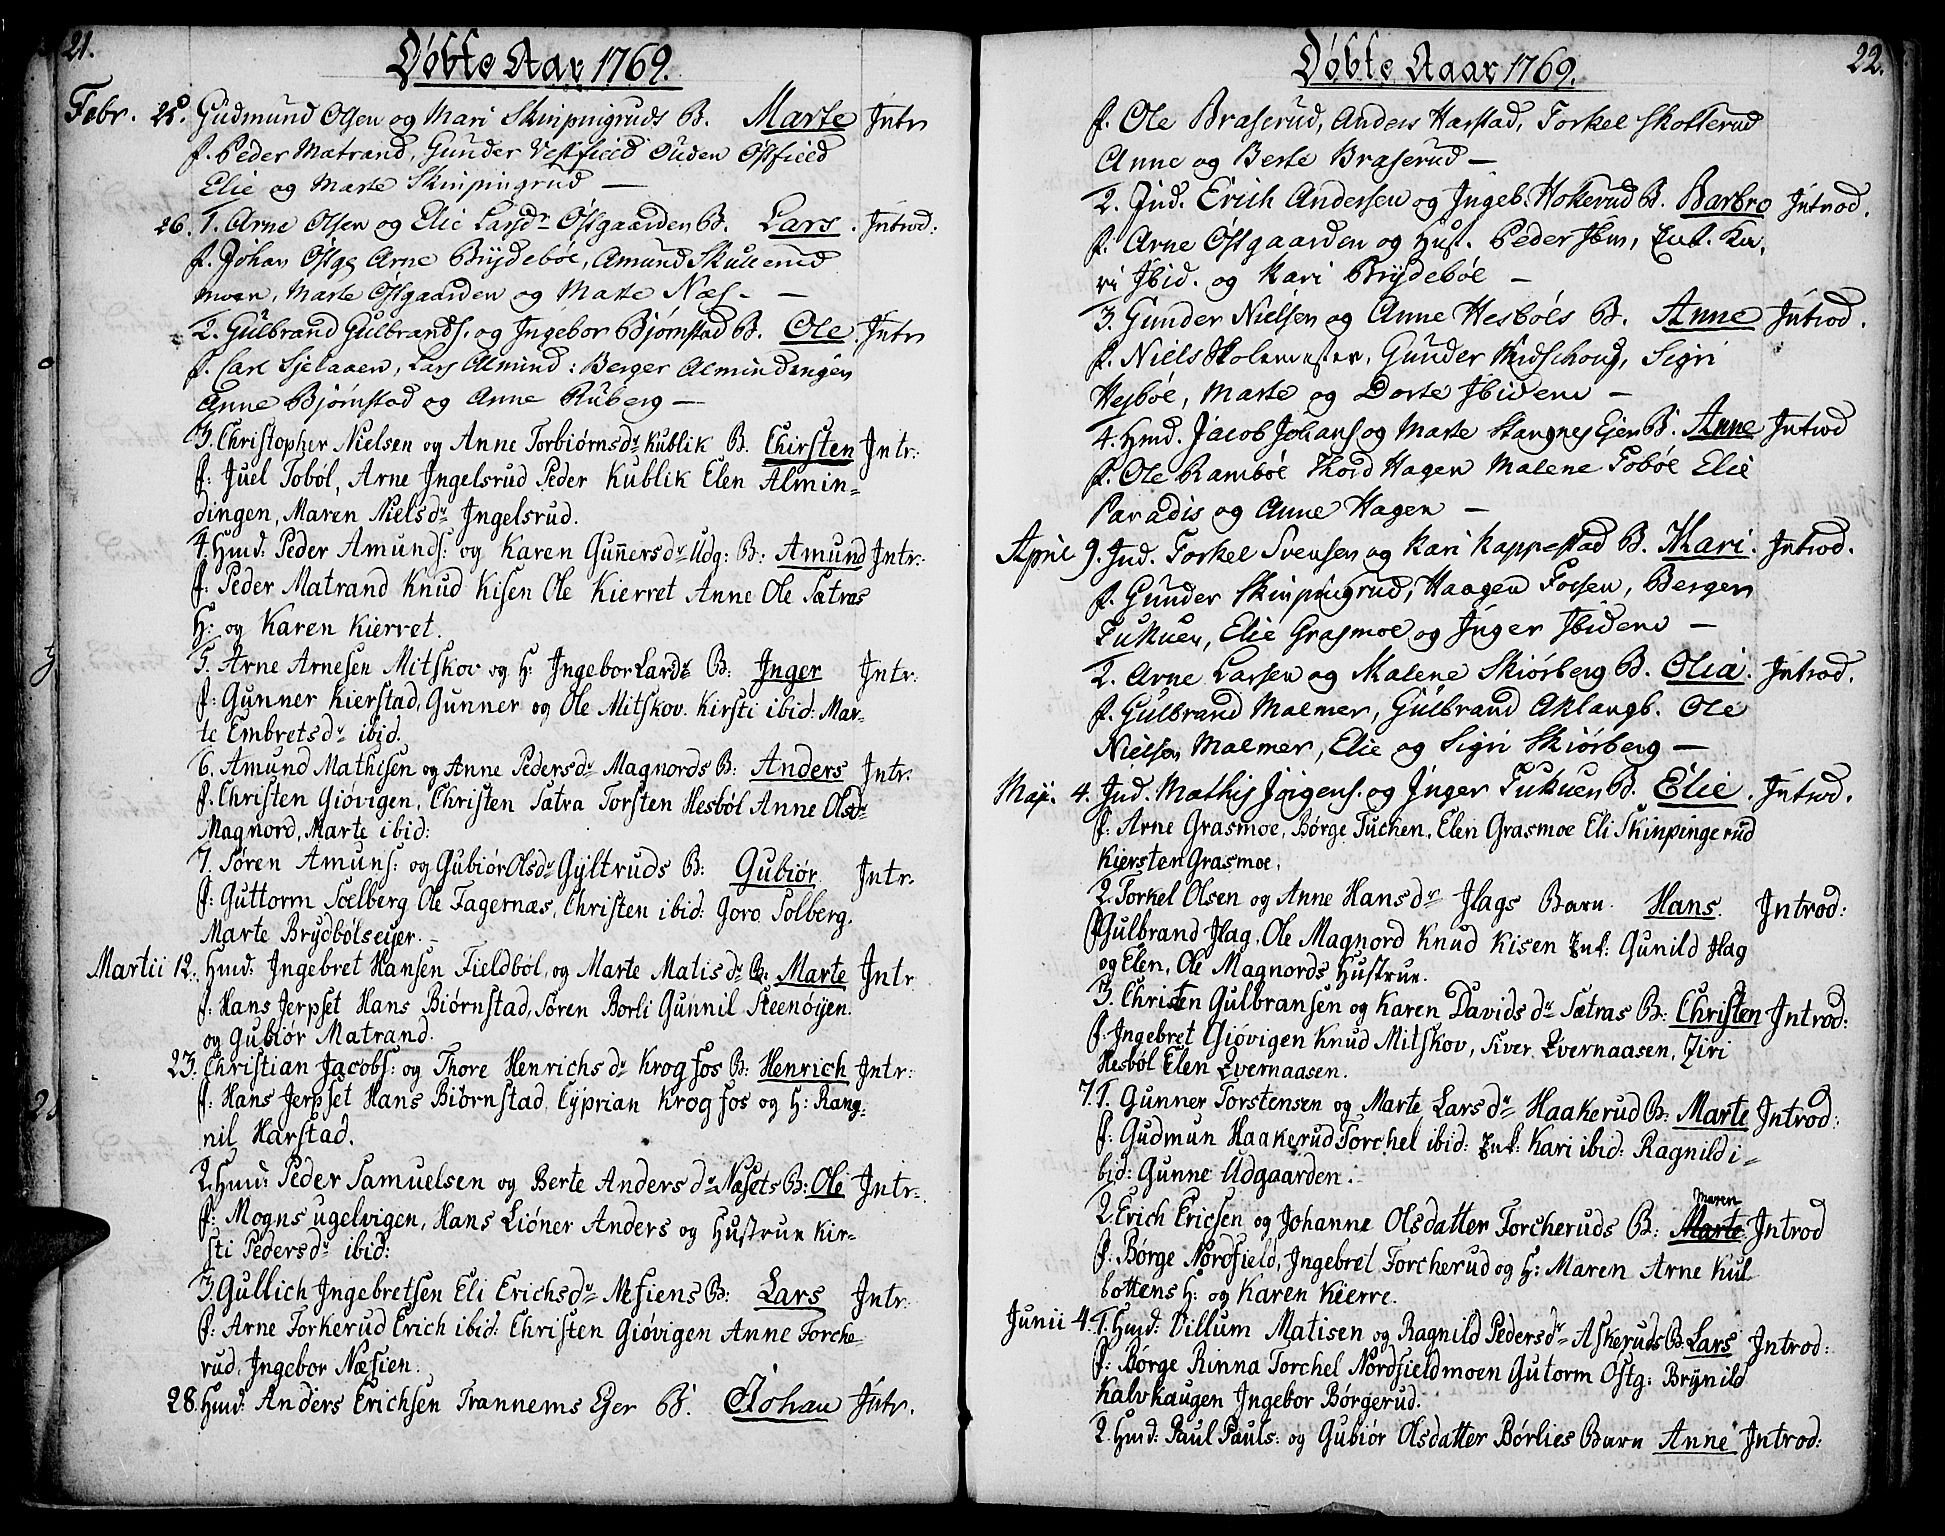 21.
Døbte Aar 1769.
Febr. 25. Gudmund Olsen og Mari Skinpingruds B. Marte Intr
f. Peder Matrand, Gunder Vestfield Ouden Ostfield
Elie og Marte Skinpingrud —
26. 1. Arne Olsen og Elie Larsdr Ostgaarden B. Lars. Introd:
f. Johan Ostg Arne Brydeböe, Amund Skullerud
moen, Marte Ostgaarden og Marte Næs — —
2. Gulbrand Gulbrands. og Ingebor Bjørnstad B. Ole. Intr
f. Carl Sjelaaen, Lars Almind: Berger Almindingen
Anne Bjørnstad og Anne Ruberg —
3. Christopher Nielsen og Anne Torbiørnsdr Kublik B. Chirsten Intr:
f: Juel Toböl, Arne Ingelsrud Peder Kublik Elen Almin=
dingen, Maren Nielsdr Ingelsrud.
4. Hmd: Peder Amunds: og Karen Gunnersdr Udg: B: Amund Intr:
f: Peder Matrand Knud Kisen Ole Kierret Anne Ole Sætras
H: og Karen Kierret.
5. Arne Arnesen Mitskov og H: Ingebor Larsdr B: Inger Intr:
f: Gunner Kierstad, Gunner og Ole Mitskov. Kirsti ibid: Mar=
te Embretsdr ibid.
6. Amund Mathisen og Anne Pedersdr Magnords B: Anders Intr:
f: Christen Giövigen, Christen Satra Torsten Hesböl Anne Olsdr
Magnord, Marte ibid:
7. Søren Amuns: og Gubiør Olsdr Gyltruds B: Gubiør. Intr.
f: Guttorm Soelberg Ole Fagernæs, Christen ibid: Goro Solberg.
Marte Brydbölseyer. —
Martii 12. Hmd: Ingebret Hansen Fieldbol, og Marte Matisdr B: Marte Intr
f: Hans Jerpset Hans Biørnstad, Søren Borli Gunnil Steenöyen.
og Gubiør Matrand.
23. Christian Jacobs: og Thore Henrichsdr Krogfos B: Henrich Intr:
f: Hans Jerpset Hans Biørnstad, Cyprian Krogfos og H: Rang=
nil Harstad.
2. Hmd: Peder Samuelsen og Berte Andersdr Næsets B: Ole Intr:
f: Mogns ugelvigen, Hans Liöner Anders og Hustrue Kir=
sti Pedersdr ibid:
3. Gullich Ingebretsen Eli Erichsdr Nesiens B: Lars Intr:
f: Arne Torkerud Erich ibid: Christen Giövigen Anne Torche=
rud. Ingebor Næsien.
28. Hmd: Anders Erichsen Trannems Ejer B. Johan Intr.
22.
Døbte Aaar 1769.
f. Ole Braserud, Anders Harstad, Torkel Skotterud
Anne og Berte Braserud —
2. Ind. Erich Andersen og Ingeb. Hokerud B. Barbro Introd.
f. Arne Ostgaarden og Hust. Peder Ibm, Enk. Ka,
ri Ibid. og Kari Brydeböe —
3. Gunder Nielsen og Anne Hesböls B. Anne Introd.
f. Niels Skolemester, Gunder Midschoug, Sigri
Hesböe, Marte og Dorte Ibidem —
4. Hmd. Jacob Johans og Marte Stangnes Ejer B. Anne Introd
f. Ole Ramböe Thord Hagen Malene Toböe Elie
Paradis og Anne Hagen —
April 9. Ind. Torkel Svensen og Kari Kappestad B. Mari. Introd.
f. Gunder Skinpingrud, Haagen Fossen, Berger
Tukuen, Elie Grasmoe og Inger Ibidem —
2. Arne Larsen og Malene Skiörberg B. Olia. Introd.
f. Gulbrand Malmer, Gulbrand Aklangb. Ole
Nielsen Malmer, Elie og Sigri Skiörberg —
Maji. 4. Ind. Mathis Jörgens. og Inger Tukuen B. Elie. Introd.
f: Arne Grasmoe, Börge Tuchen, Elen Grasmoe Eli Skinpingerud
Kiersten Grasmoe.
2. Torkel Olsen og Anne Hansdr Ilags Barn. Hans. Introd:
f: Gulbrand Ilag, Ole Magnord Knud Kisen Enk: Gunild Ilag
og Elen, Ole Magnords Hustrue.
3. Christen Gulbransen og Karen Davidsdr Sætras B: Christen Introd:
f: Ingebret Giövigen Knud Mitskov, Siver Evernaasen, Ziri
Hesböl Elen Evernaasen.
7. 1. Gunner Torstensen og Marte Larsdr Haakerud B: Marte Introd:
f: Gudmun Haakerud Torchel ibid: Enk: Kari ibid: Ragnild i=
bid: Gunne Udgaarden.
2. Erich Ericsen og Johanne Olsdatter Torcheruds B: Marte Maren Introd
f: Børge Nordfield, Ingebret Torcherud og H: Maren Arne Kul
bottens H: og Karen Kierre.
Junii 4. 1. Hmd: Villum Matisen og Ragnild Pedersdr Askeruds B: Lars Introd:
f: Børge Rinna Torchel Nordfieldmoen Gutorm Ostg: Brynild
Kalvhaugen Ingebor Börgerud.
2. Hmd: Paul Pauls: og Gubiør Olsdatter Børlies Barn Anne Introd: